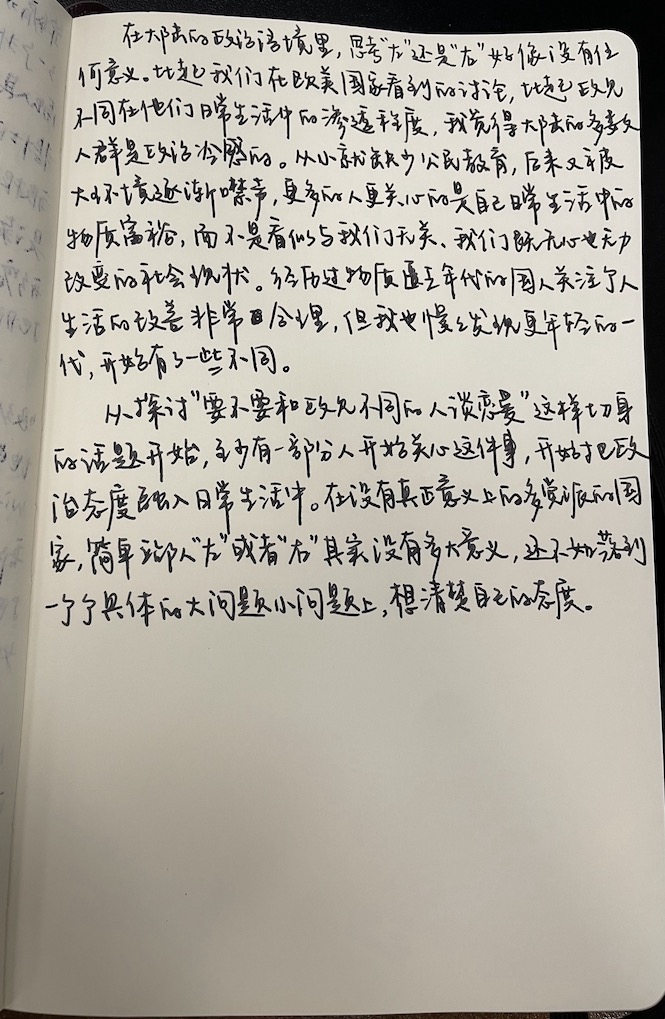 在大陆的政治语境里，思考"左"还是"右"好像没有任
何意义。比起我们在欧美国家看到的讨论，比起政见
不同在他们日常生活中的渗透程度，我觉得大陆的多数
人群是政治冷感的。从小就缺少公民教育，后来又年度
大环境逐渐噤声，更多的人更关心的是自己日常生活中的
物质富裕，而不是看似与我们无关、我们既无心也无力
改变的社会现状。经历过物质匮乏年代的国人关注个人
生活的改善非常合理，但我也慢慢发现更年轻的一
代，开始有了一些不同。
从探讨"要不要和政见不同的人谈恋爱"这样切身
的话题开始，至少有一部分人开始关心这件事，开始把政
治态度融入日常生活中。在没有真正意义上的多党派的国
家，简单站队"左"或者"右"其实没有多大意义，还不如落到
一个个具体的大问题小问题上，想清楚自己的态度。